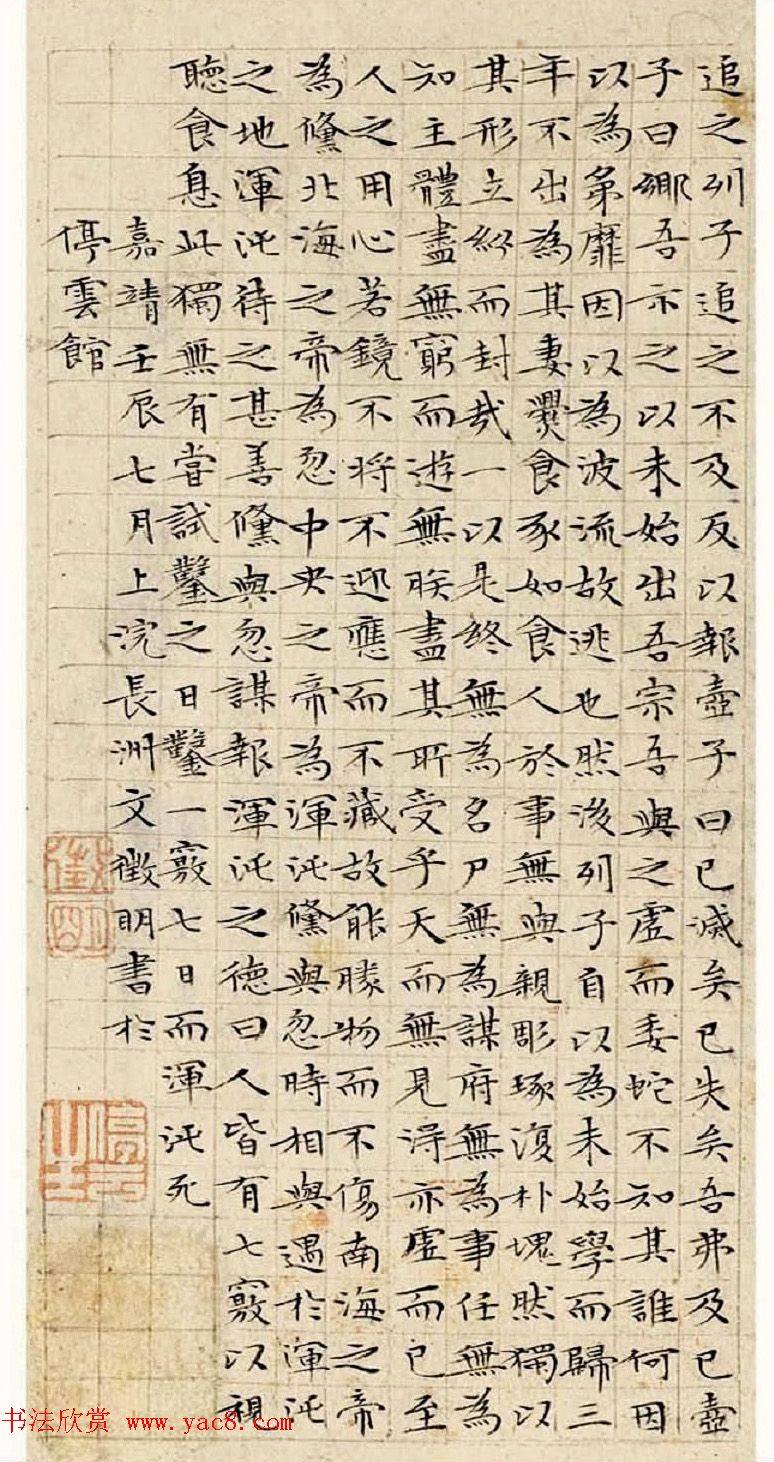 追之列子追之不及反以報壺子曰已滅矣已失矣吾弗及已壺
子曰鄉吾示之以未始出吾宗吾與之虛而委蛇不知其誰何因
以為弟靡因以為波流故逃也然後列子自以為未始學而歸三
年不出為其妻爨食豕如食人於事無與親彫琢復朴塊然獨以
其形立紛而封哉一以是終無為名尸無為謀府無為事任無為
知主體盡無窮而遊無朕盡其所受乎天而無見得亦虛而已至
人之用心若鏡不將不迎應而不藏故能勝物而不傷南海之帝
為儵北海之帝為忽中央之帝為渾沌儵與忽時相與遇於渾沌
之地渾沌待之甚善儵與忽謀報渾沌之德曰人皆有七竅以視
聽食息此獨無有嘗試鑿之日鑿一竅七日而渾沌死
嘉靖壬辰七月上浣長洲文徵明書於
停雲館
徵明
书法欣赏 www.yac8.com